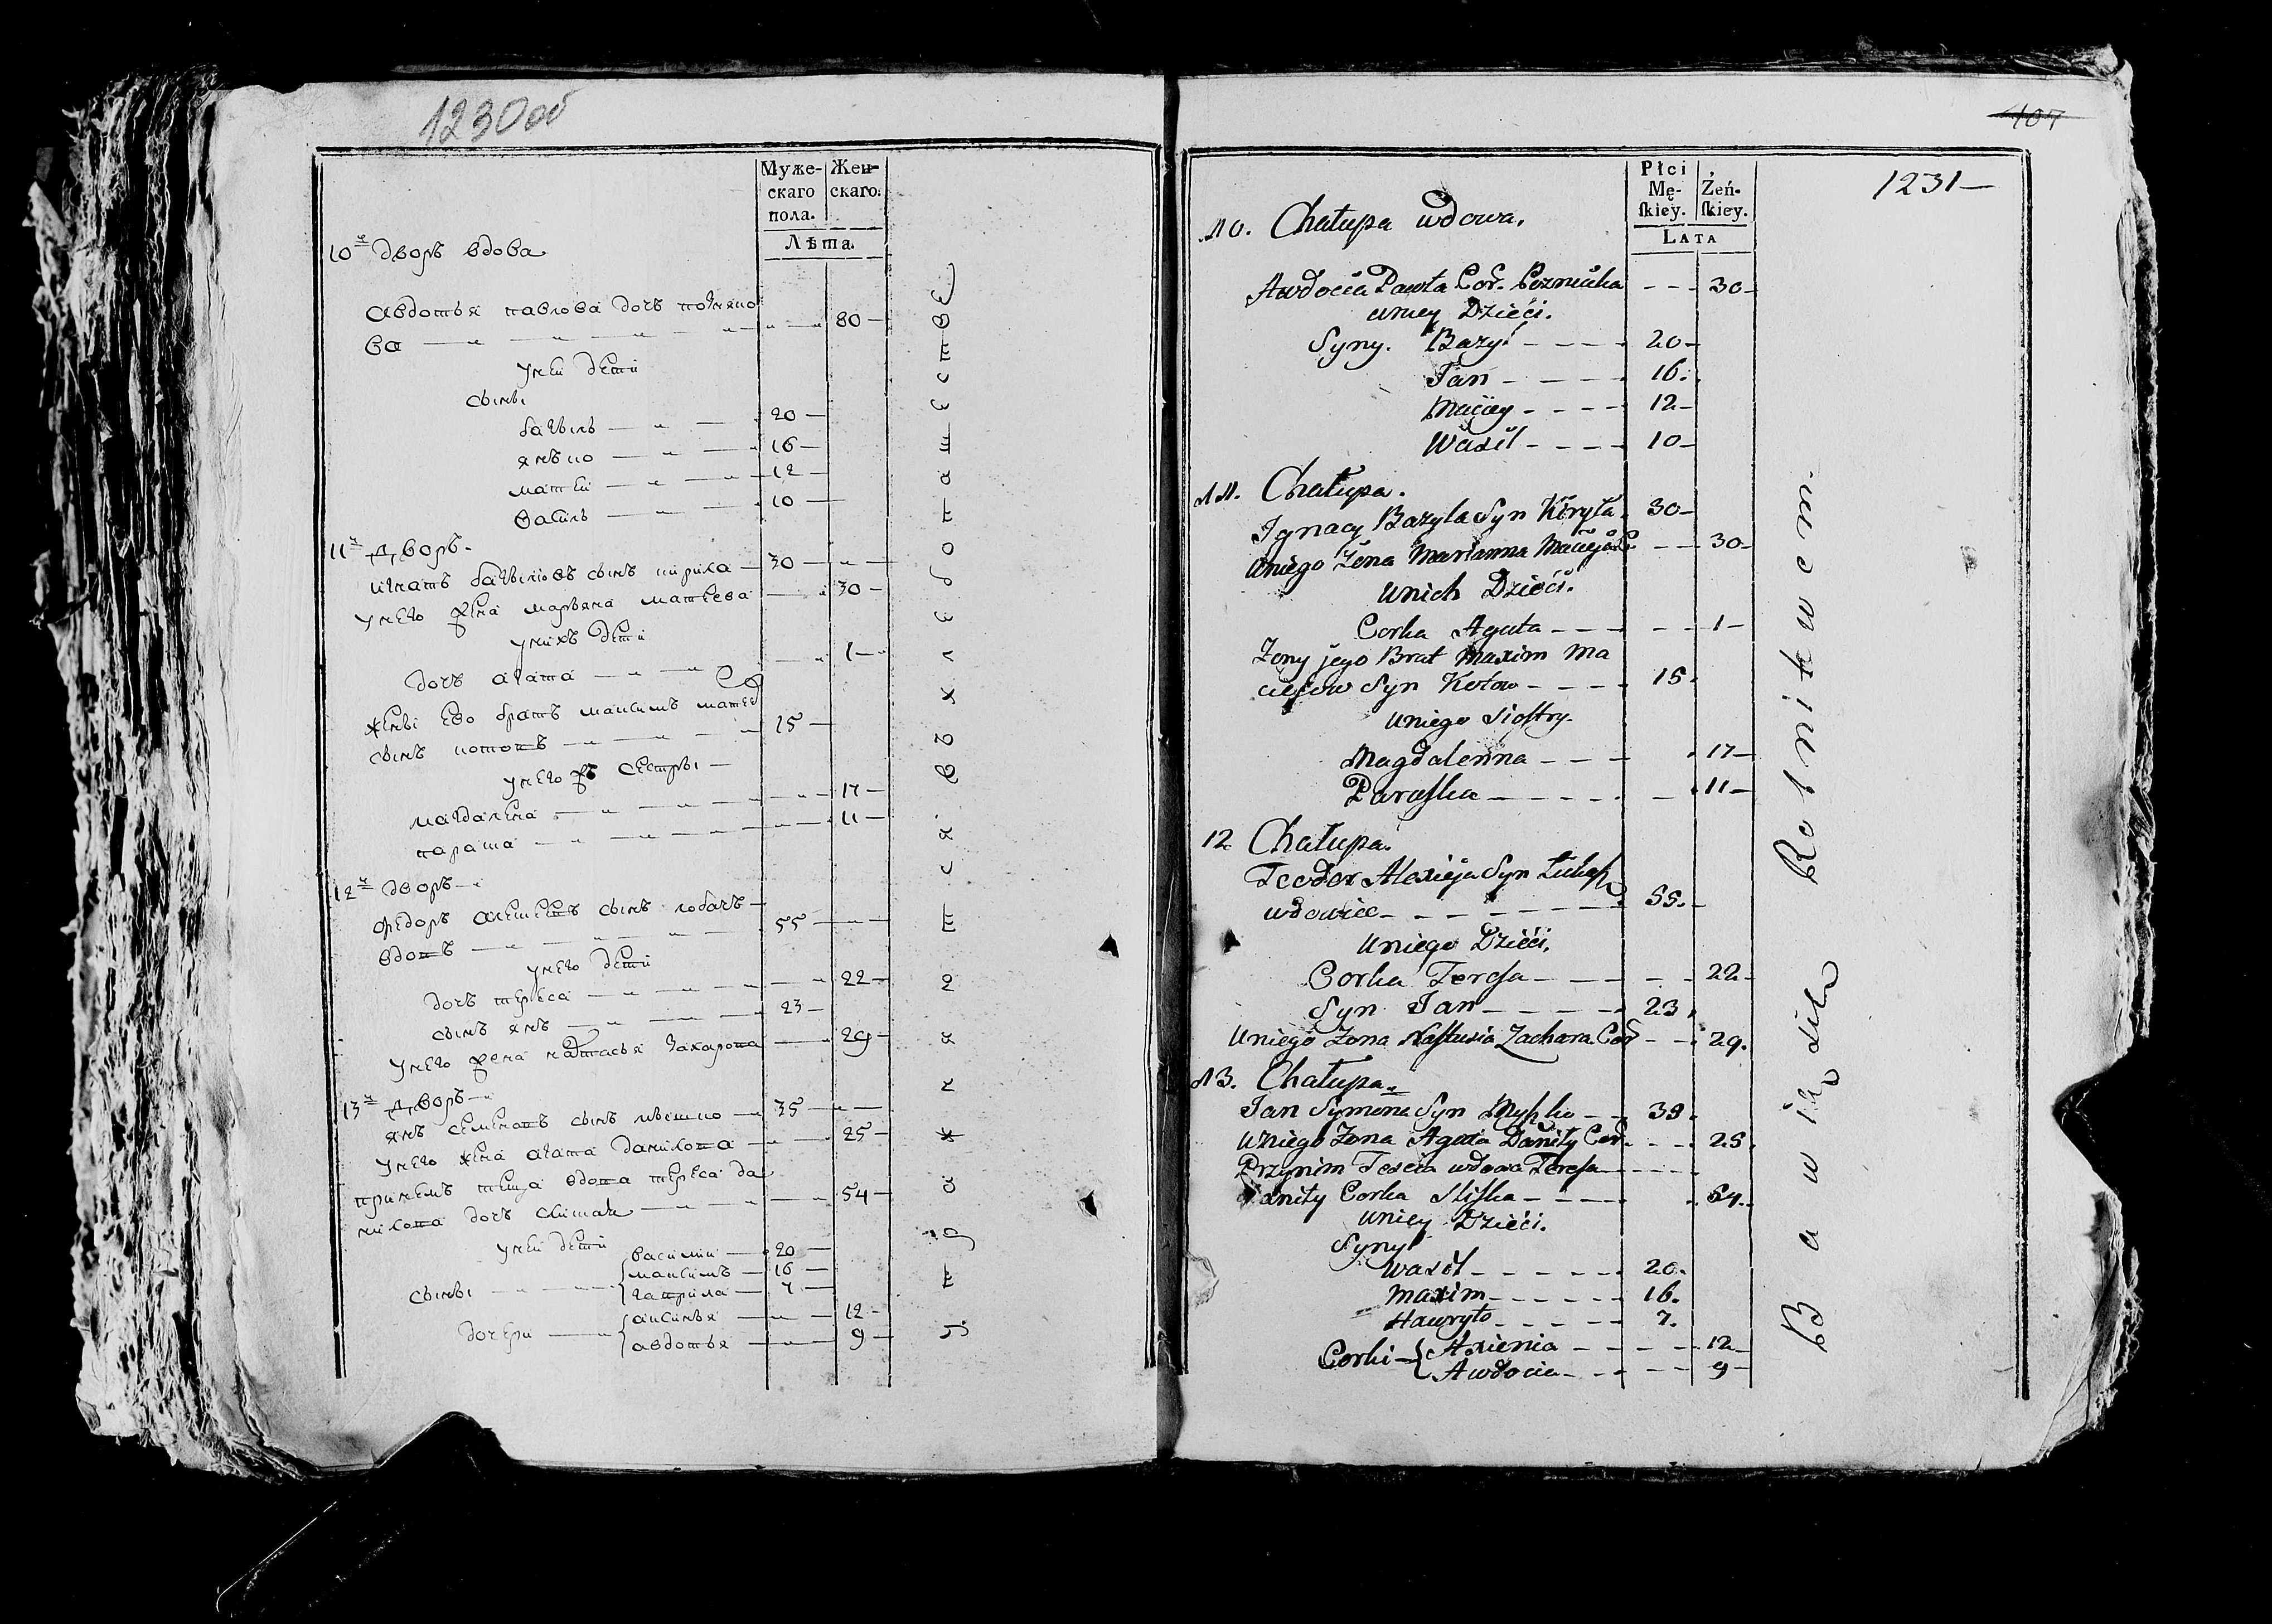 1230 об
Муже-
скаго
пола.
Жен-
скаго.
Лѣта
10й дворъ вдова
авдотья павлова дочъ позняко
ва 80
унеи дети
сыны
базыль 20
янъко 16
матеи 12
василь 10
11й дворъ.
игнатъ базылювъ сынъ кирила 30
унего жена марьяна матеева 30
унихъ дети
дочъ агата 1
жены его братъ максимъ матеев
сынъ котовъ 15
унего жъ сестры
магдалена 17
параша 11
12й дворъ
федоръ алексеевъ сынъ лобачъ
вдовъ 55
унего дети
дочъ тереса 22
сынъ янъ 23
унего жена настасья захарова 29
13й дворъ
янъ семеновъ сынъ мышко 35
унего жена агата данилова 25
принемъ теща вдова тереса да
нилова дочъ 54
унеи дети
сыны
василии 20
максимъ 16
гаврила 7
дочери
аксинья 12
авдотья 9
упражняется въ хлебопашестве
107
1231
Płci
Mę-
skiey.
Żeń-
skiey.
LATA
10. Chałupa wdowa.
Awdocia Pawła Cor. Pozniucha 30
uniey Dzieci.
Syny. Bazyl 20
Jan 16.
Maciey 12
Wasil 10
11. Chałupa.
Ignacy Bazyla Syn Kiryła 30
Uniego Zena Marianna Macieja C. 30
Unich Dzieci.
Corka Agata 1
Zeny jego Brat Maxim Ma
ciejow Syn Kotow 15
Uniego Siostry
Magdalenna 17
Paraska 11
12 Chałupa.
Teodor Alexieja Syn
wdowiec 55.
Uniego Dzieci.
Corka Teresa 22
Syn Jan 23
Uniego Zona Nastusia Zachara Cor 29.
13. Chałupa.
Jan Symona Syn Myszko 35.
Uniego Zona Agata Daniły Cor. 25.
Przynim Tescia wdowa Teresa
Daniły Corka 54.
Uniey Dzieci.
Syny
Wasil 20.
Maxim 16.
Hawryło 7.
Corki
Axienia 12
Awdocia 9
Bawią się Rolnitwem.